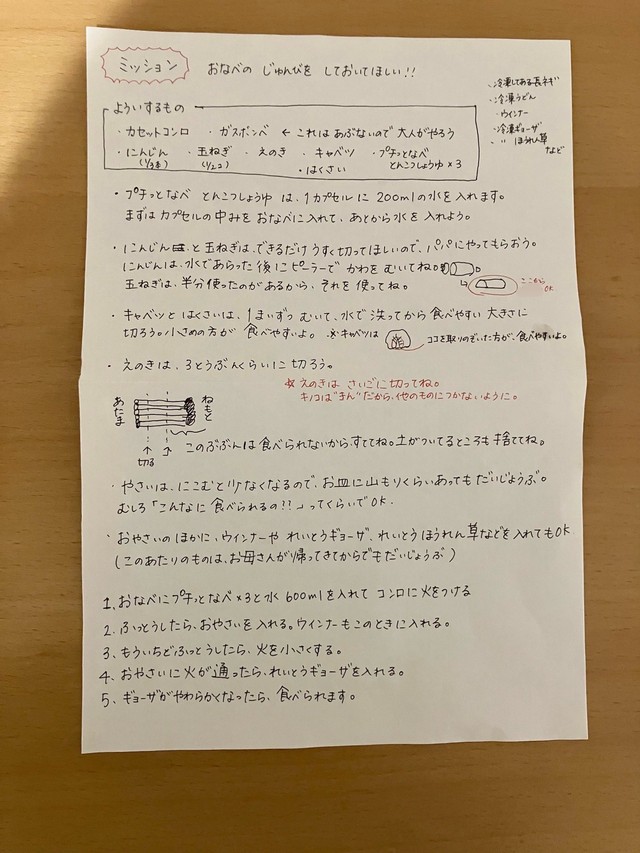 ミッション
おなべの じゅんびを しておいてほしい!!
・冷凍してある長ネギ
・冷凍うどん
・ウインナー
・冷凍ギョーザ
・ 〃 ほうれん草
など
よういするもの
・カセットコンロ ・ガスボンベ ← これはあぶないので大人がやろう
・にんじん ・玉ねぎ ・えのき ・キャベツ ・プチっとなべ
(1/3本) (1/2コ) ・はくさい とんこつしょうゆ×3
・プチっとなべ とんこつしょうゆ は、1カプセルに 200mlの水を入れます。
まずはカプセルの中みをおなべに入れて、あとから水を入れよう。
・にんじんと玉ねぎは、できるだけうすく切ってほしいので、パパにやってもらおう。
にんじんは、水であらった後にピーラーで かわをむいてね。
玉ねぎは、半分使ったのがあるから、それを使ってね。
ここから
OK
・キャベツとはくさいは、1まいずつむいて、水で洗ってから食べやすい大きさに
切ろう。小さめの方が食べやすいよ。 ※キャベツは ココを取りのぞいた方が、食べやすいよ。
・えのきは、3とうぶんくらいに切ろう。
☆えのきは さいごに切ってね。
キノコは"きん"だから、他のものにつかないように。
あたま
ねもと
↑
切る
↑
このぶぶんは食べられないから、すててね。土がついてるところも捨ててね。
・やさいは、にこむと少なくなるので、お皿に山もりくらいあってもだいじょうぶ。
むしろ「こんなに食べられるの!?」ってくらいでOK.
・おやさいのほかに、ウインナーや れいとうギョーザ、れいとうほうれん草などを入れてもOK
(このあたりのものは、お母さんが帰ってきてからでもだいじょうぶ)
1、おなべにプチっとなべ×3と水 600mlを入れて コンロに火をつける
2、ふっとうしたら、おやさいを入れる。ウインナーもこのときに入れる。
3、もういちどふっとうしたら、火を小さくする。
4、おやさいに火が通ったら、れいとうギョーザを入れる。
5、ギョーザがやわらかくなったら、食べられます。